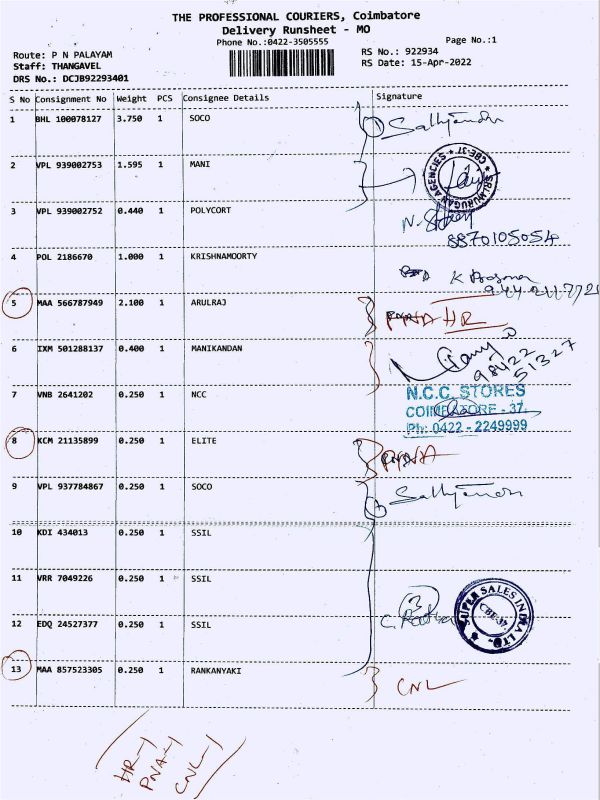 THE PROFESSIONAL COURIERS, Coimbatore
Delivery Runsheet - MO
Phone No.:0422-3505555
Page No.:1
Route: P N PALAYAM
RS No.: 922934
Staff: THANGAVEL
RS Date: 15-Apr-2022
DRS No.: DCJB92293401
S No Consignment No Weight PCS Consignee Details Signature
1 BHL 100078127 3.750 1 SOCO
2 VPL 939002753 1.595 1 MANI
SRI MURUGAN AGENCIES ★ CBE-37 ★
3 VPL 939002752 0.440 1 POLYCORT
8870105054
4 POL 2186670 1.000 1 KRISHNAMOORTY
5 MAA 566787949 2.100 1 ARULRAJ HR
6 IXM 501288137 0.400 1 MANIKANDAN
98422
51327
7 VNB 2641202 0.250 1 NCC N.C.C. STORES
COIMBATORE - 37.
Ph: 0422 - 2249999
8 KCM 21135899 0.250 1 ELITE PNA
9 VPL 937784867 0.250 1 SOCO
10 KDI 434013 0.250 1 SSIL
11 VRR 7049226 0.250 1 SSIL
3
SUPER SALES INDIA LTD. ★ CBE-37
12 EDQ 24527377 0.250 1 SSIL
13 MAA 857523305 0.250 1 RANKANYAKI CNL
HR-1
PNA-1
CNL-1